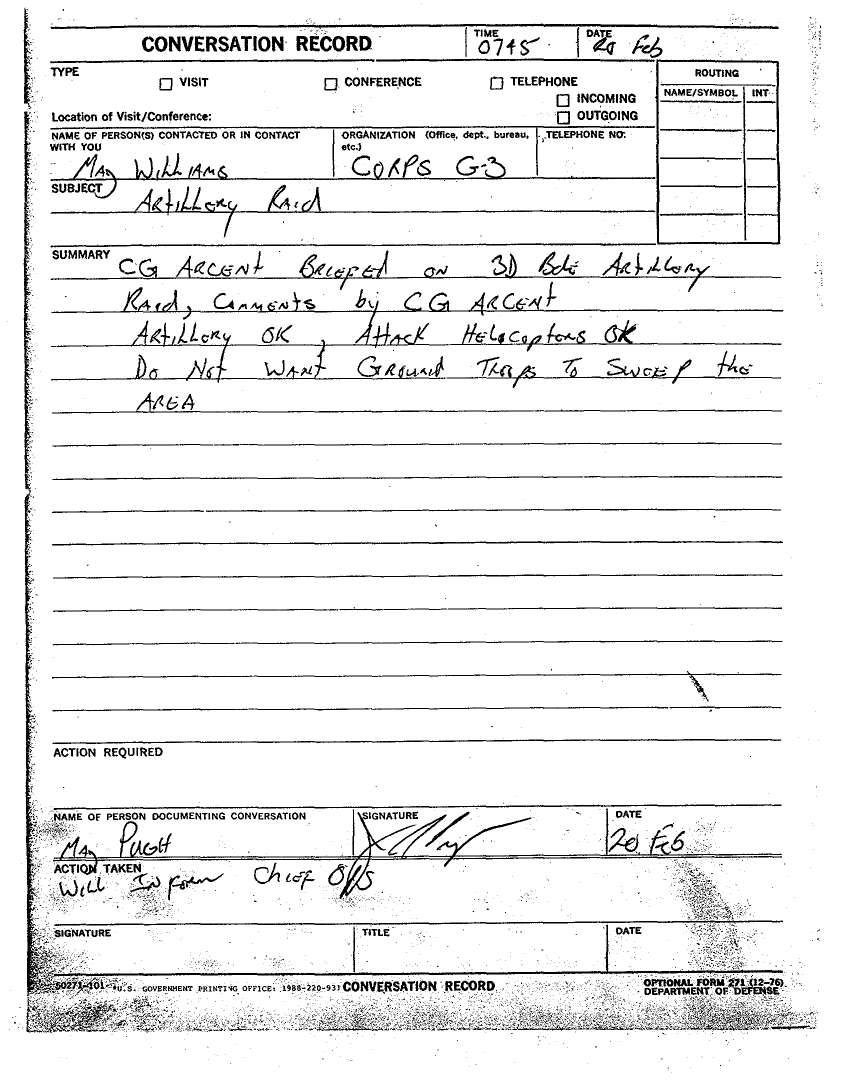 CONVERSATION RECORD
TIME
0745
DATE
20 Feb
TYPE
☐ VISIT ☐ CONFERENCE ☐ TELEPHONE
☐ INCOMING
☐ OUTGOING
Location of Visit/Conference:
ROUTING
NAME/SYMBOL INT
NAME OF PERSON(S) CONTACTED OR IN CONTACT
WITH YOU
Maj Williams
ORGANIZATION (Office, dept., bureau,
etc.)
CORPS G-3
TELEPHONE NO:
SUBJECT
Artillery Raid
SUMMARY
CG ARCENT Briefed on 3D Bde Artillery
Raid, Comments by CG ARCENT
Artillery OK, Attack Helocopters OK
Do Not Want Ground Troops To Sweep the
AREA
ACTION REQUIRED
NAME OF PERSON DOCUMENTING CONVERSATION
Maj Pugh
SIGNATURE
DATE
20 Feb
ACTION TAKEN
Will Inform Chief Ops
SIGNATURE
TITLE
DATE
50271-101 U.S. GOVERNMENT PRINTING OFFICE: 1988-220-931 CONVERSATION RECORD
OPTIONAL FORM 271 (12-76)
DEPARTMENT OF DEFENSE